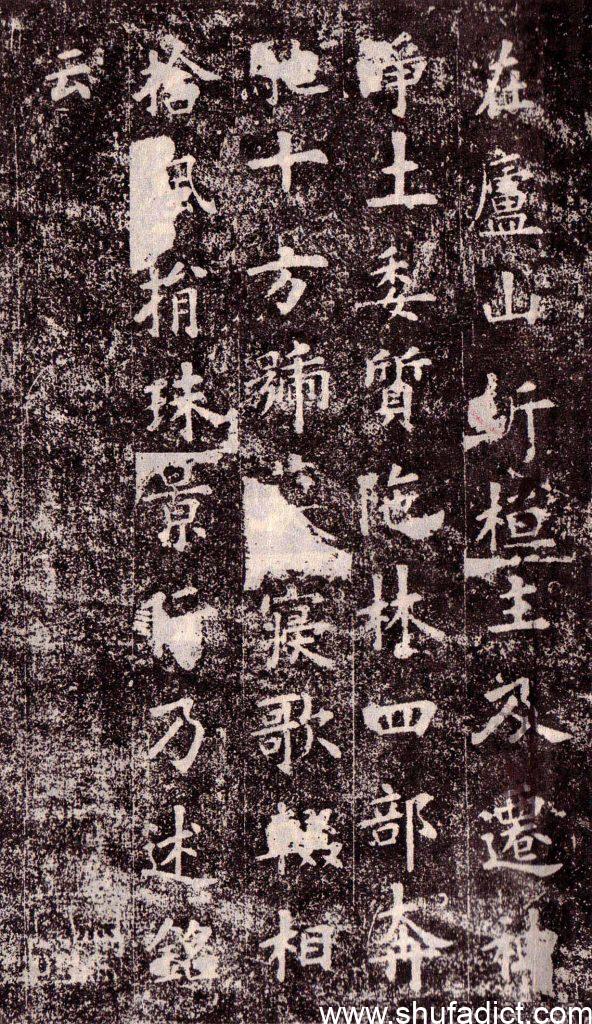 在廬山桓主及遷神
淨土委質陁林四部奔
馳十方號寢歌輟相
捨風捐珠景行乃述銘
云
www.shufadict.com